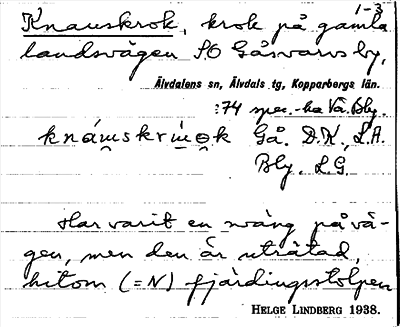 1-3
Knauskrok, krok på gamla
landsvägen SO Gåsvarvs by,
Älvdalens sn, Älvdals tg, Kopparbergs län.
:74 spec.-ka Vå. Bly.
knáu̯skrìṷok Gå. D.K., L.A.
Bly. L.G.
Har varit en sväng på vä-
gen, men den är uträtad,
hitom (=N) fjärdingsstolpen
HELGE LINDBERG 1938.